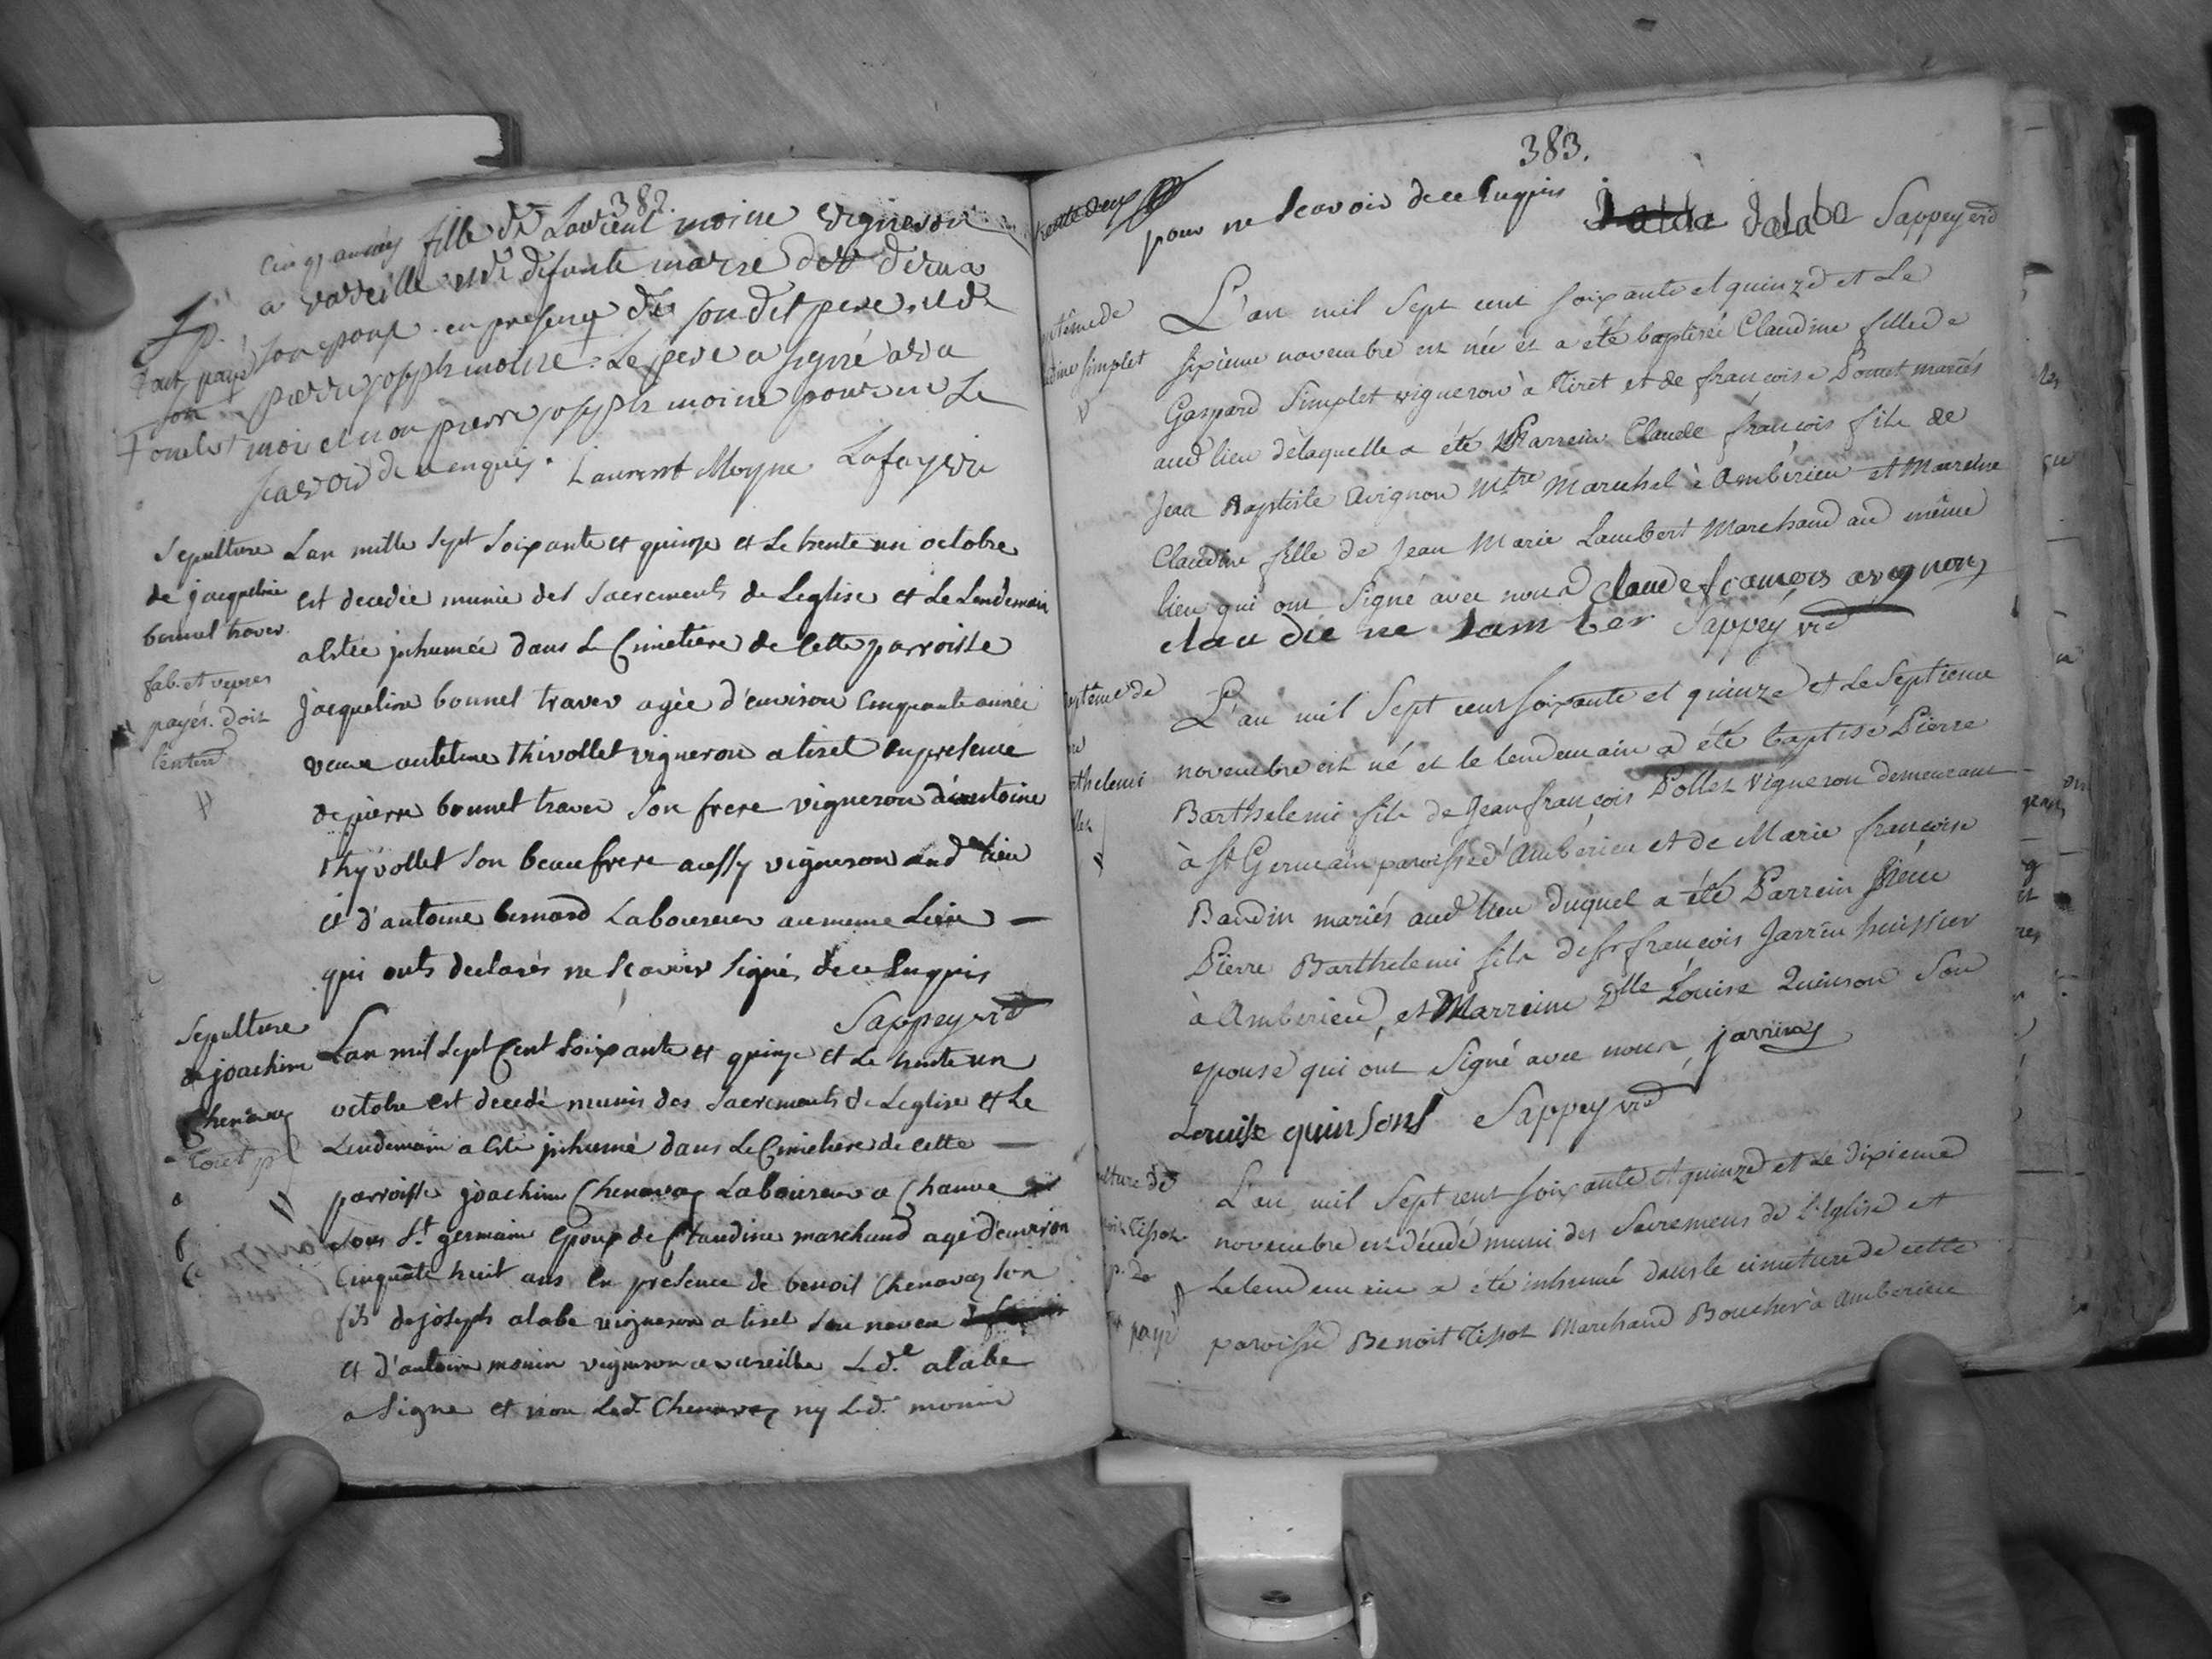 382.
fille de Laurent moine vigneron
a vareille et de defunte marie
son epoux. en presence de son dit pere. et de
pierre joseph moine. Le pere a signé avec
moi et non pierre joseph moine pour ne le
scavoir de ce enquis. Laurent Moyne Lafayvre
tout payé
Sepulture
de jacqueline
bonnet traver
fab. et vepres
payés. doit
l'enterr
Lan mille sept soixante et quinze et le trente un octobre
est decedée munie des sacrements de Leglise et Le Lendemain
a estée inhumée dans Le Cimetiere de Cette parroisse
jacqueline bonnet traver agée d'environ Cinquante années
veuve antoine thivollet vigneron a tiret en presence
de pierre bonnet traver Son frere vigneron d'antoine
thyvollet Son beaufrere aussy vigneron aud lieu
et d'antoine bernard Laboureur au meme Lieu —
qui onts declarés ne Scavoir Signés de ce Enquis
Sappey vic
Sepulture
de joachim
Chenavaz
Lan mil sept Cent Soixante et quinze et Le trente un
octobre est decedé munis des Sacrements de Leglise et Le
Lendemain a esté inhumé dans Le Cimetiere de Cette —
parroisse joachim Chenavaz Laboureur a Chauve
sous St germain Epoux de Claudine marchand agé d'environ
Cinquãte huit ans En presence de benoit Chenavaz son
fils de joseph alabe vigneron a tiret Son neveu
et d'antoine monin vigneron a vareille Led.e alabe
a Signe et non Led. Chenavaz ny Led. monin
383.
pour ne Scavoir de ce Enquis Jalabe Sappey vic
Baptême de
Claudine Simplet
L'an mil Sept cent soixante et quinze et Le
sixième novembre est née et a été baptisée Claudine fille de
Gaspard Simplet vigneron à Tiret et de françoise Ponet mariés
aud lieu de laquelle a été Parrein Claude françois fils de
Jean Baptiste Avignon Mtre Marechal à Ambérieu et Mareine
Claudine fille de Jean Marie Lambert Marchand aud même
lieu qui ont Signé avec nous Claude francois avignon
clau die ne Lam ber Sappey vic
Baptême de
L'an mil Sept cent soixante et quinze et Le septieme
novembre est né et le lendemain a été baptisé Pierre
Barthelemi fils de Jean françois Pollet Vigneron demeurant
à St Germain paroisse d'Ambérieu et de Marie françoise
Baudin mariés aud lieu duquel a été Parrein sieur
Pierre Barthelemi fils de sr françois Jarrin huissier
à Ambérieu, et Marreine Dlle Louise Quinson Son
epouse qui ont Signé avec nous jarrin
Louise quinsons Sappey vic
L'an mil Sept cent soixante et quinze et Le dixieme
novembre est décédé muni des Sacremens de L'Eglise et
Le lendemain a été inhumé dans le cimetiere de cette
paroisse Benoit Tissot Marchand Boucher à Amberieu
payé